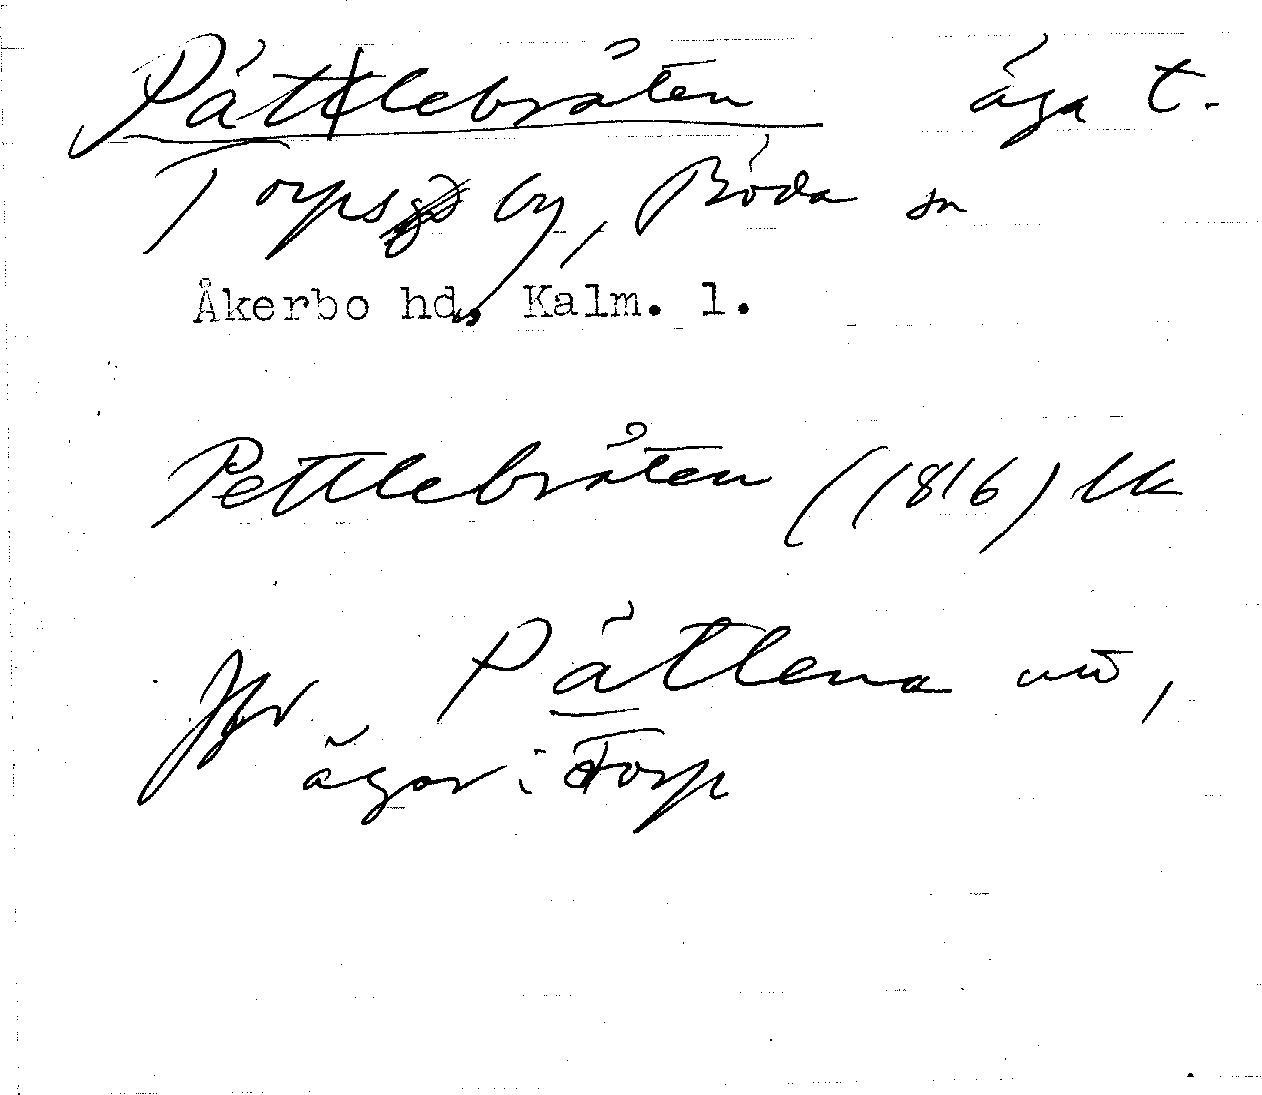 Pätlebråten äga t.
Torps by, Böda sn
Åkerbo hd, Kalm. l.
Pettlebråten (1816) lk
Jfr Pätlena
ägor i Torp